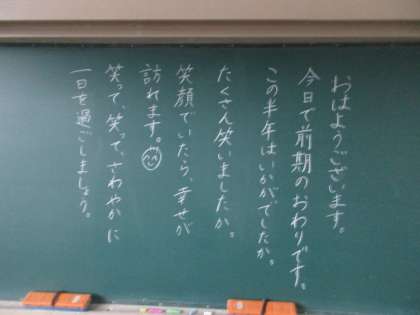 おはようございます。
今日で前期のおわりです。
この半年はいかがでしたか。
たくさん笑いましたか。
笑顔でいたら、幸せが
訪れます。
笑って、笑って、さわやかに
一日を過ごしましょう。